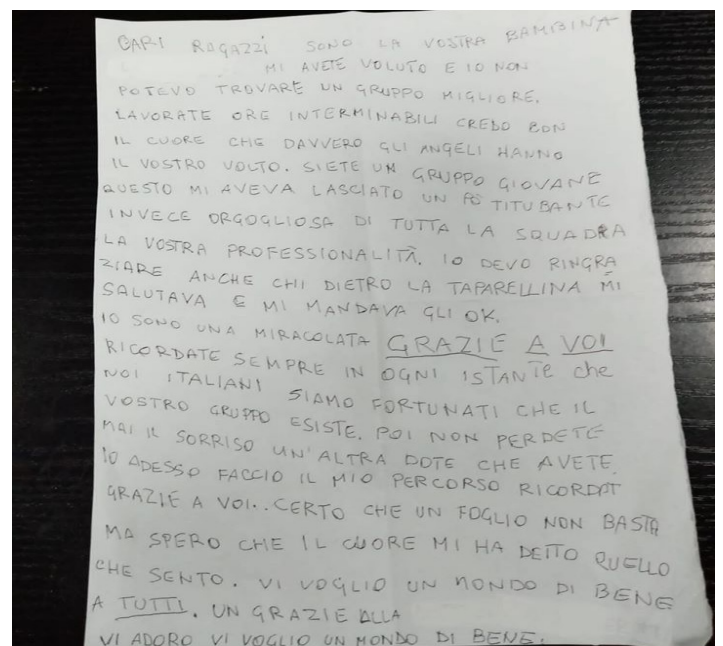 CARI RAGAZZI SONO LA VOSTRA BAMBINA
MI AVETE VOLUTO E IO NON
POTEVO TROVARE UN GRUPPO MIGLIORE.
LAVORATE ORE INTERMINABILI CREDO CON
IL CUORE CHE DAVVERO GLI ANGELI HANNO
IL VOSTRO VOLTO. SIETE UN GRUPPO GIOVANE
QUESTO MI AVEVA LASCIATO UN PÒ TITUBANTE
INVECE ORGOGLIOSA DI TUTTA LA SQUADRA
LA VOSTRA PROFESSIONALITÀ. IO DEVO RINGRA
ZIARE ANCHE CHI DIETRO LA TAPARELLINA MI
SALUTAVA E MI MANDAVA GLI OK.
IO SONO UNA MIRACOLATA GRAZIE A VOI
RICORDATE SEMPRE IN OGNI ISTANTE che
NOI ITALIANI SIAMO FORTUNATI CHE IL
VOSTRO GRUPPO ESISTE. POI NON PERDETE
MAI IL SORRISO UN'ALTRA DOTE CHE AVETE.
IO ADESSO FACCIO IL MIO PERCORSO RICORDAT
GRAZIE A VOI.. CERTO CHE UN FOGLIO NON BASTA
MA SPERO CHE IL CUORE MI HA DETTO QUELLO
CHE SENTO. VI VOGLIO UN MONDO DI BENE
A TUTTI. UN GRAZIE ALLA
VI ADORO VI VOGLIO UN MONDO DI BENE.